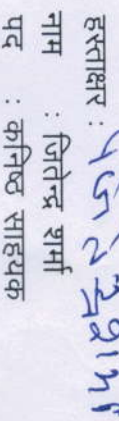 हस्ताक्षर :
नाम : जितेन्द्र शर्मा
पद : कनिष्ठ साहयक